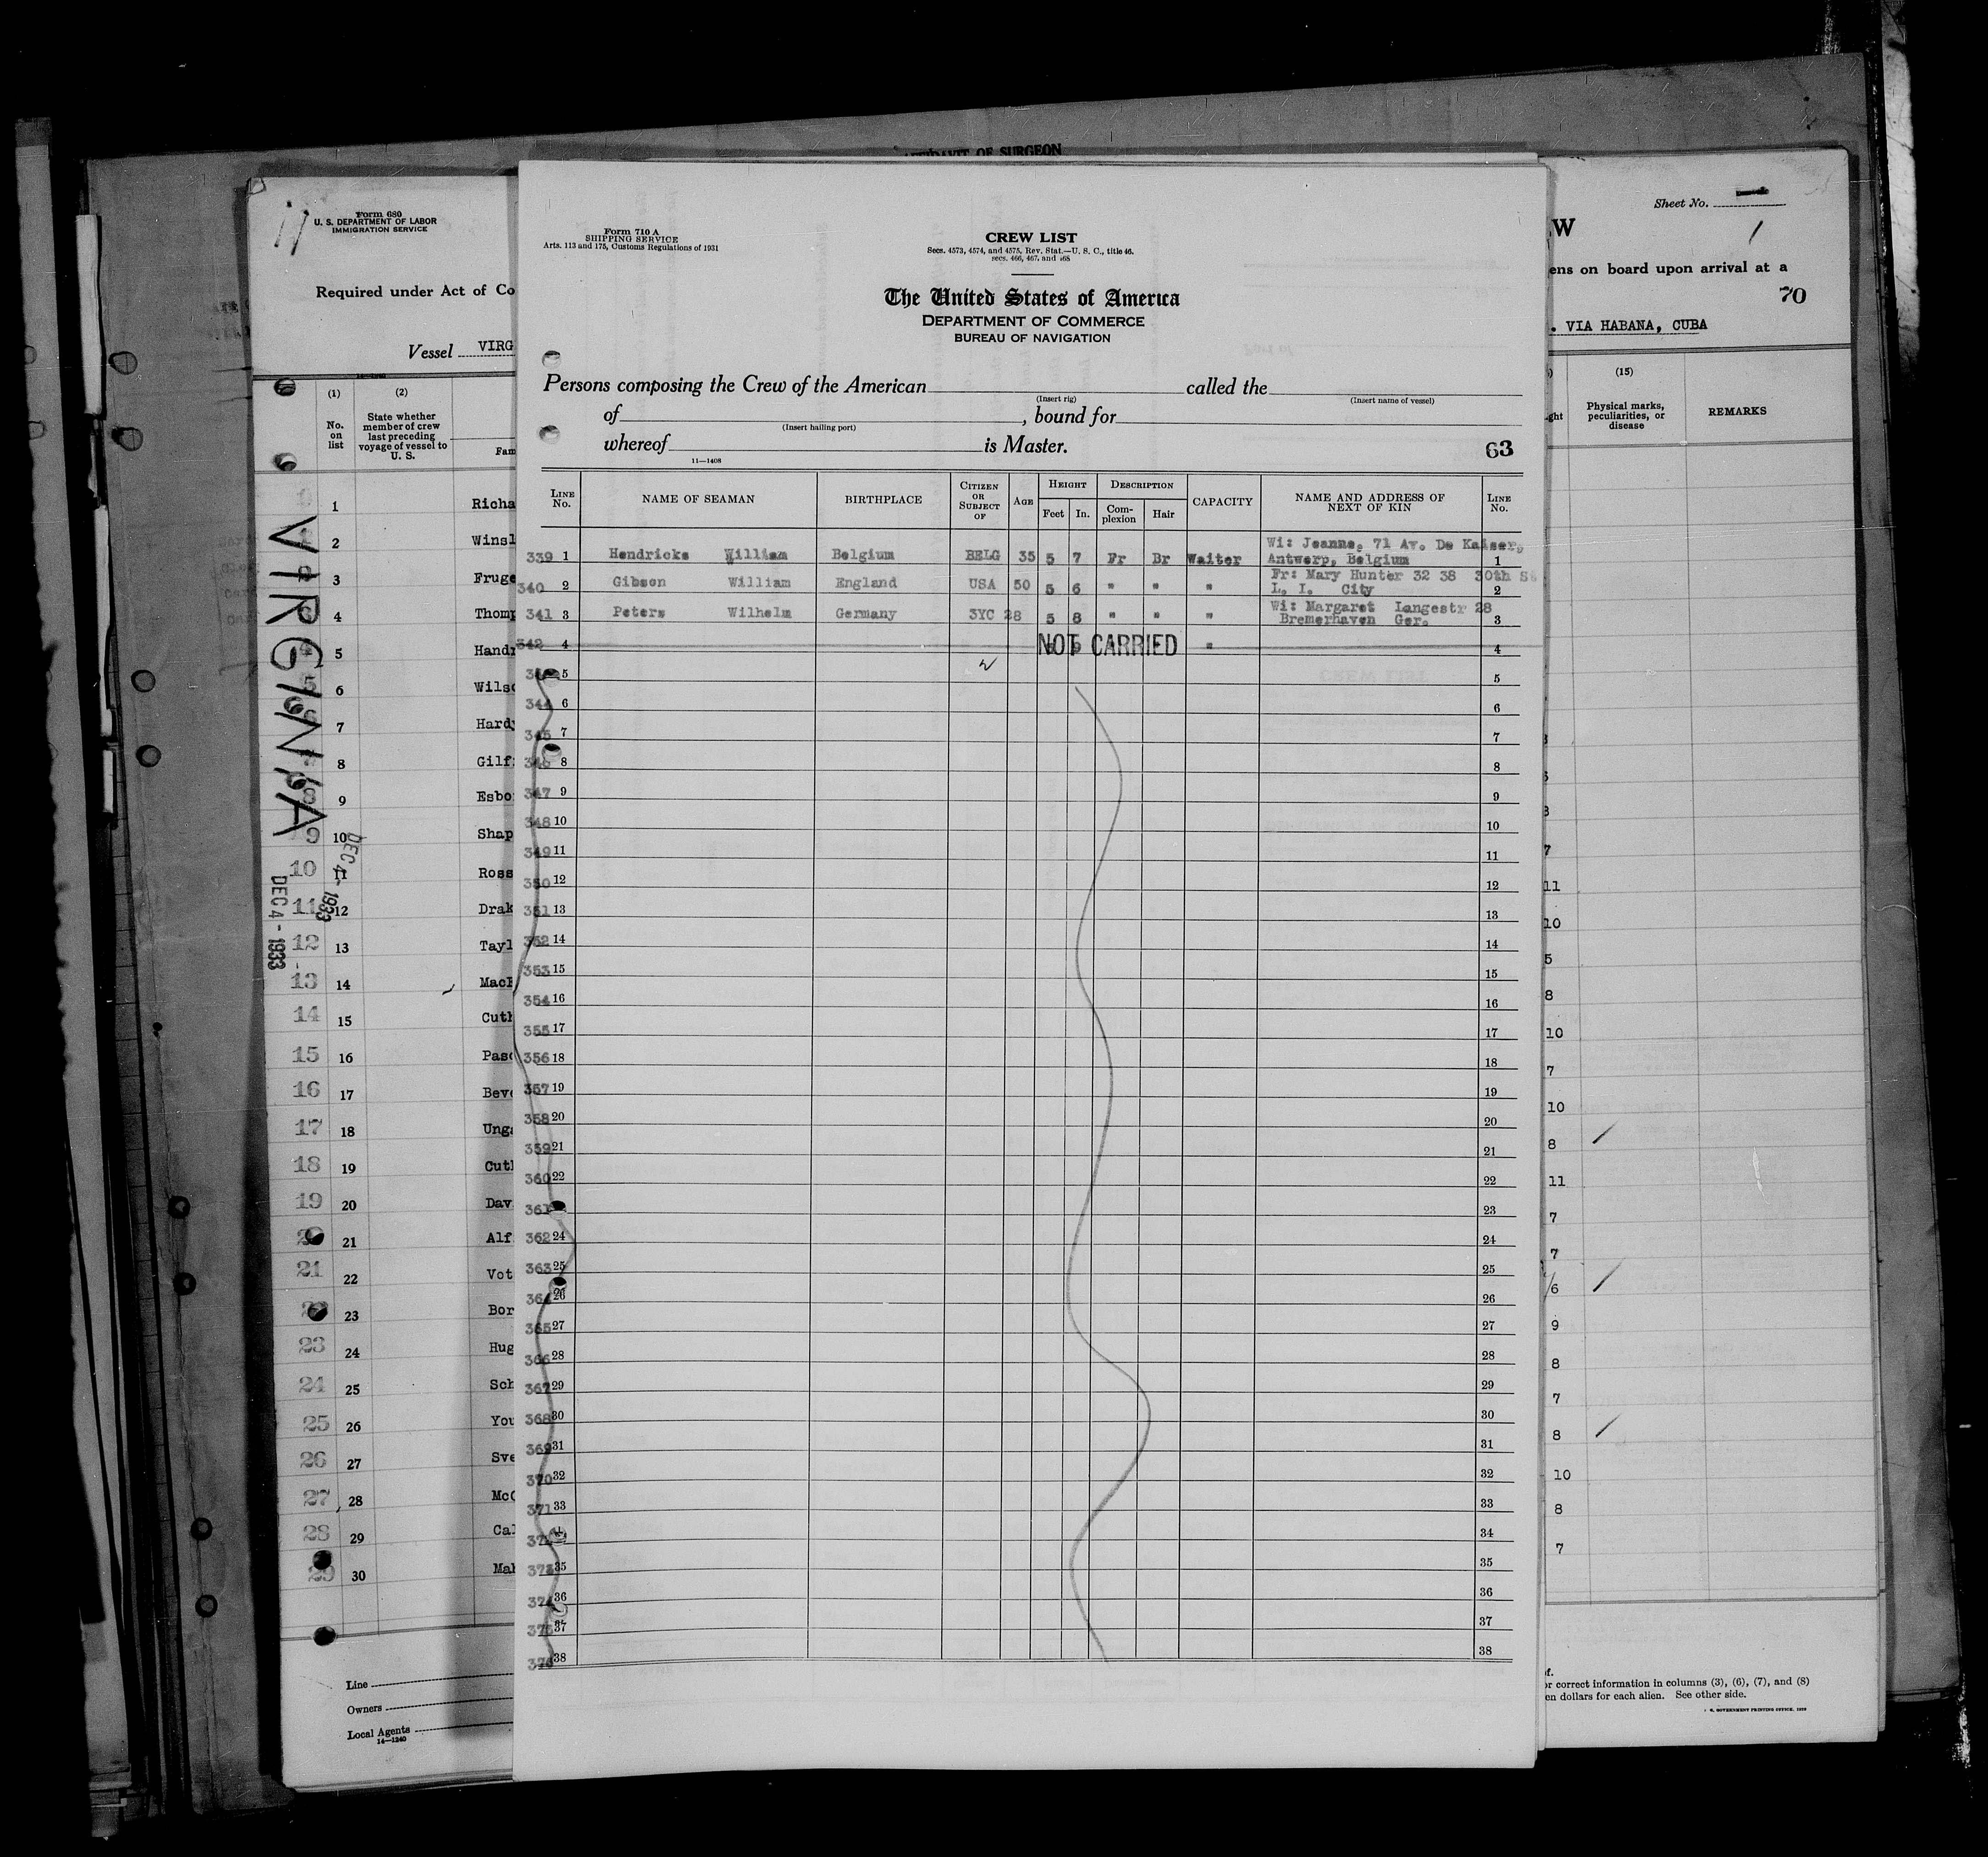 AFFIDAVIT OF SURGEON
Form 680
U. S. DEPARTMENT OF LABOR
IMMIGRATION SERVICE
Required under Act of Co
Vessel VIRG
(1) (2)
No. on list
State whether member of crew last preceding voyage of vessel to U. S.
Fam
1 Richa
2 Winsl
3 Fruge
4 Thomp
5 Handr
6 Wilso
7 Hardy
8 Gilf
9 Esbo
10 Shap
11 Ross
12 Drak
13 Tayl
14 Mac
15 Cut
16 Pas
17 Bev
18 Ung
19 Cut
20 Dav
21 Alf
22 Vot
23 Bor
24 Hug
25 Sch
26 You
27 Sve
28 Mc
29 Cal
30 Mah
VIRGINIA
DEC 4 - 1933
DEC 4 - 1933
10
11
12
13
14
15
16
17
18
19
21
23
24
25
26
27
28
29
Line
Owners
Local Agents
14—1240
Form 710 A
SHIPPING SERVICE
Arts. 113 and 175, Customs Regulations of 1931
CREW LIST
Secs. 4573, 4574, and 4575, Rev. Stat.—U. S. C., title 46,
secs. 466, 467, and 468
The United States of America
DEPARTMENT OF COMMERCE
BUREAU OF NAVIGATION
Persons composing the Crew of the American called the
(Insert rig) (Insert name of vessel)
of , bound for
(Insert hailing port)
whereof is Master.
11—1408
63
LINE No. NAME OF SEAMAN BIRTHPLACE CITIZEN OR SUBJECT OF AGE HEIGHT Feet In. DESCRIPTION Complexion Hair CAPACITY NAME AND ADDRESS OF NEXT OF KIN LINE No.
Wi: Jeanne, 71 Av. De Kaiser,
339 1 Hendricks William Belgium BELG 35 5 7 Fr Br Waiter Antwerp, Belgium 1
Fr: Mary Hunter 32 38 30th St
340 2 Gibson William England USA 50 5 6 " " " L. I. City 2
Wi: Margaret Langestr 28
341 3 Peters Wilhelm Germany 3YC 28 5 8 " " " Bremerhaven Ger. 3
342 4 NOT CARRIED " 4
5 5
344 6 6
345 7 7
346 8 8
347 9 9
348 10 10
349 11 11
350 12 12
351 13 13
352 14 14
353 15 15
354 16 16
355 17 17
356 18 18
357 19 19
358 20 20
359 21 21
360 22 22
361 23
362 24 24
363 25 25
364 26 26
365 27 27
366 28 28
367 29 29
368 30 30
369 31 31
370 32 32
371 33 33
34
373 35 35
374 36 36
375 37 37
376 38 38
Sheet No.
1
W
ens on board upon arrival at a
70
. VIA HABANA, CUBA
(15)
ght
Physical marks, peculiarities, or disease
REMARKS
7
11
10
5
8
10
7
10
8
11
7
7
6
9
8
7
8
10
8
7
or correct information in columns (3), (6), (7), and (8)
en dollars for each alien. See other side.
GOVERNMENT PRINTING OFFICE